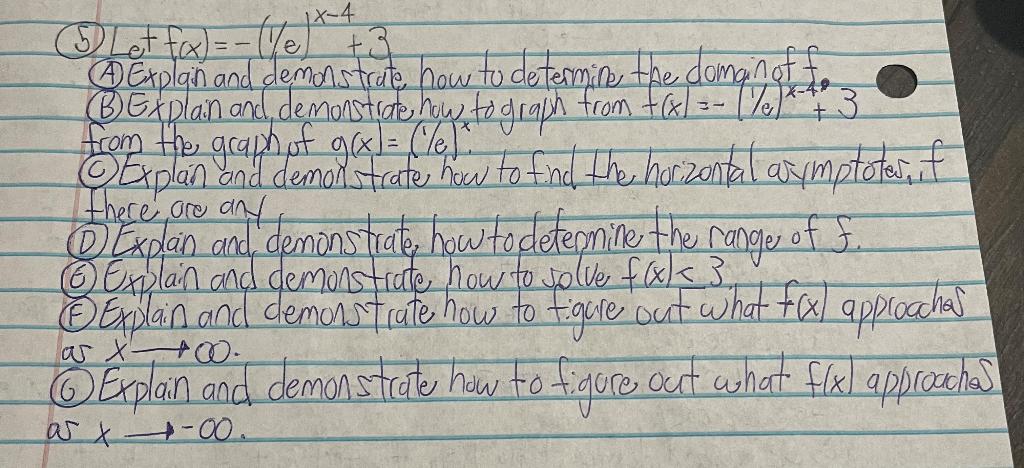 ⑤ Let f(x) = -(1/e)^(x-4) + 3
Ⓐ Explain and demonstrate how to determine the domain of f.
Ⓑ Explain and demonstrate how to graph from f(x) = -(1/e)^(x-4) + 3
from the graph of g(x) = (1/e)^x.
Ⓒ Explan and demonstrate how to find the horizontal asymptotes, if
there are any
Ⓓ Explain and demonstrate how to determine the range of f.
Ⓔ Explain and demonstrate how to solve f(x) < 3
Ⓕ Explain and demonstrate how to figure out what f(x) approaches
as x → ∞.
Ⓖ Explain and demonstrate how to figure out what f(x) approaches
as x → -∞.